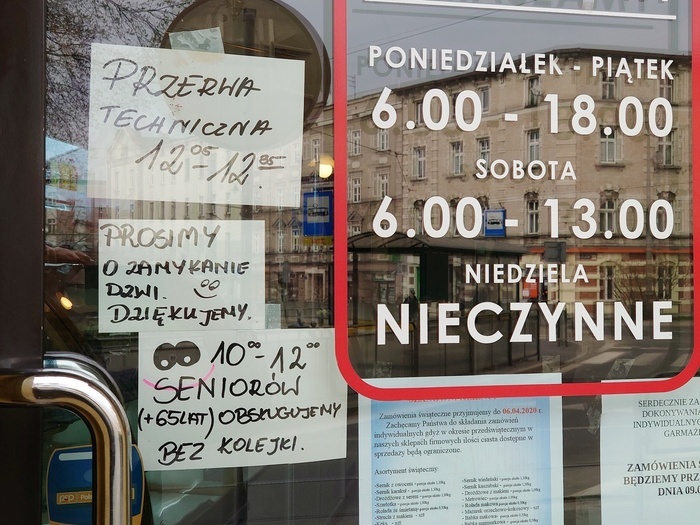 PRZERWA
TECHNICZNA
12 05 - 12 25
PROSIMY
O ZAMYKANIE
DZWI.
DZIĘKUJEMY.
10 00 - 12 00
SENIORÓW
(+65LAT) OBSŁUGUJEMY
BEZ KOLEJKI.
PONIEDZIAŁEK - PIĄTEK
6.00 - 18.00
SOBOTA
6.00 - 13.00
NIEDZIELA
NIECZYNNE
Zamówienia świąteczne przyjmujemy do 06.04.2020 r.
Zachęcamy Państwa do składania zamówień
indywidualnych gdyż w okresie przedświątecznym w
naszych sklepach firmowych ilości ciasta dostępne w
sprzedaży będą ograniczone.
Asortyment świąteczny:
-Sernik z owocem
-Sernik wiedeński
SERDECZNIE ZA
DOKONYWAN
INDYWIDUALNYC
GARMAŻ
ZAMÓWIENIA Ś
BĘDZIEMY PRZ
DNIA 09.0